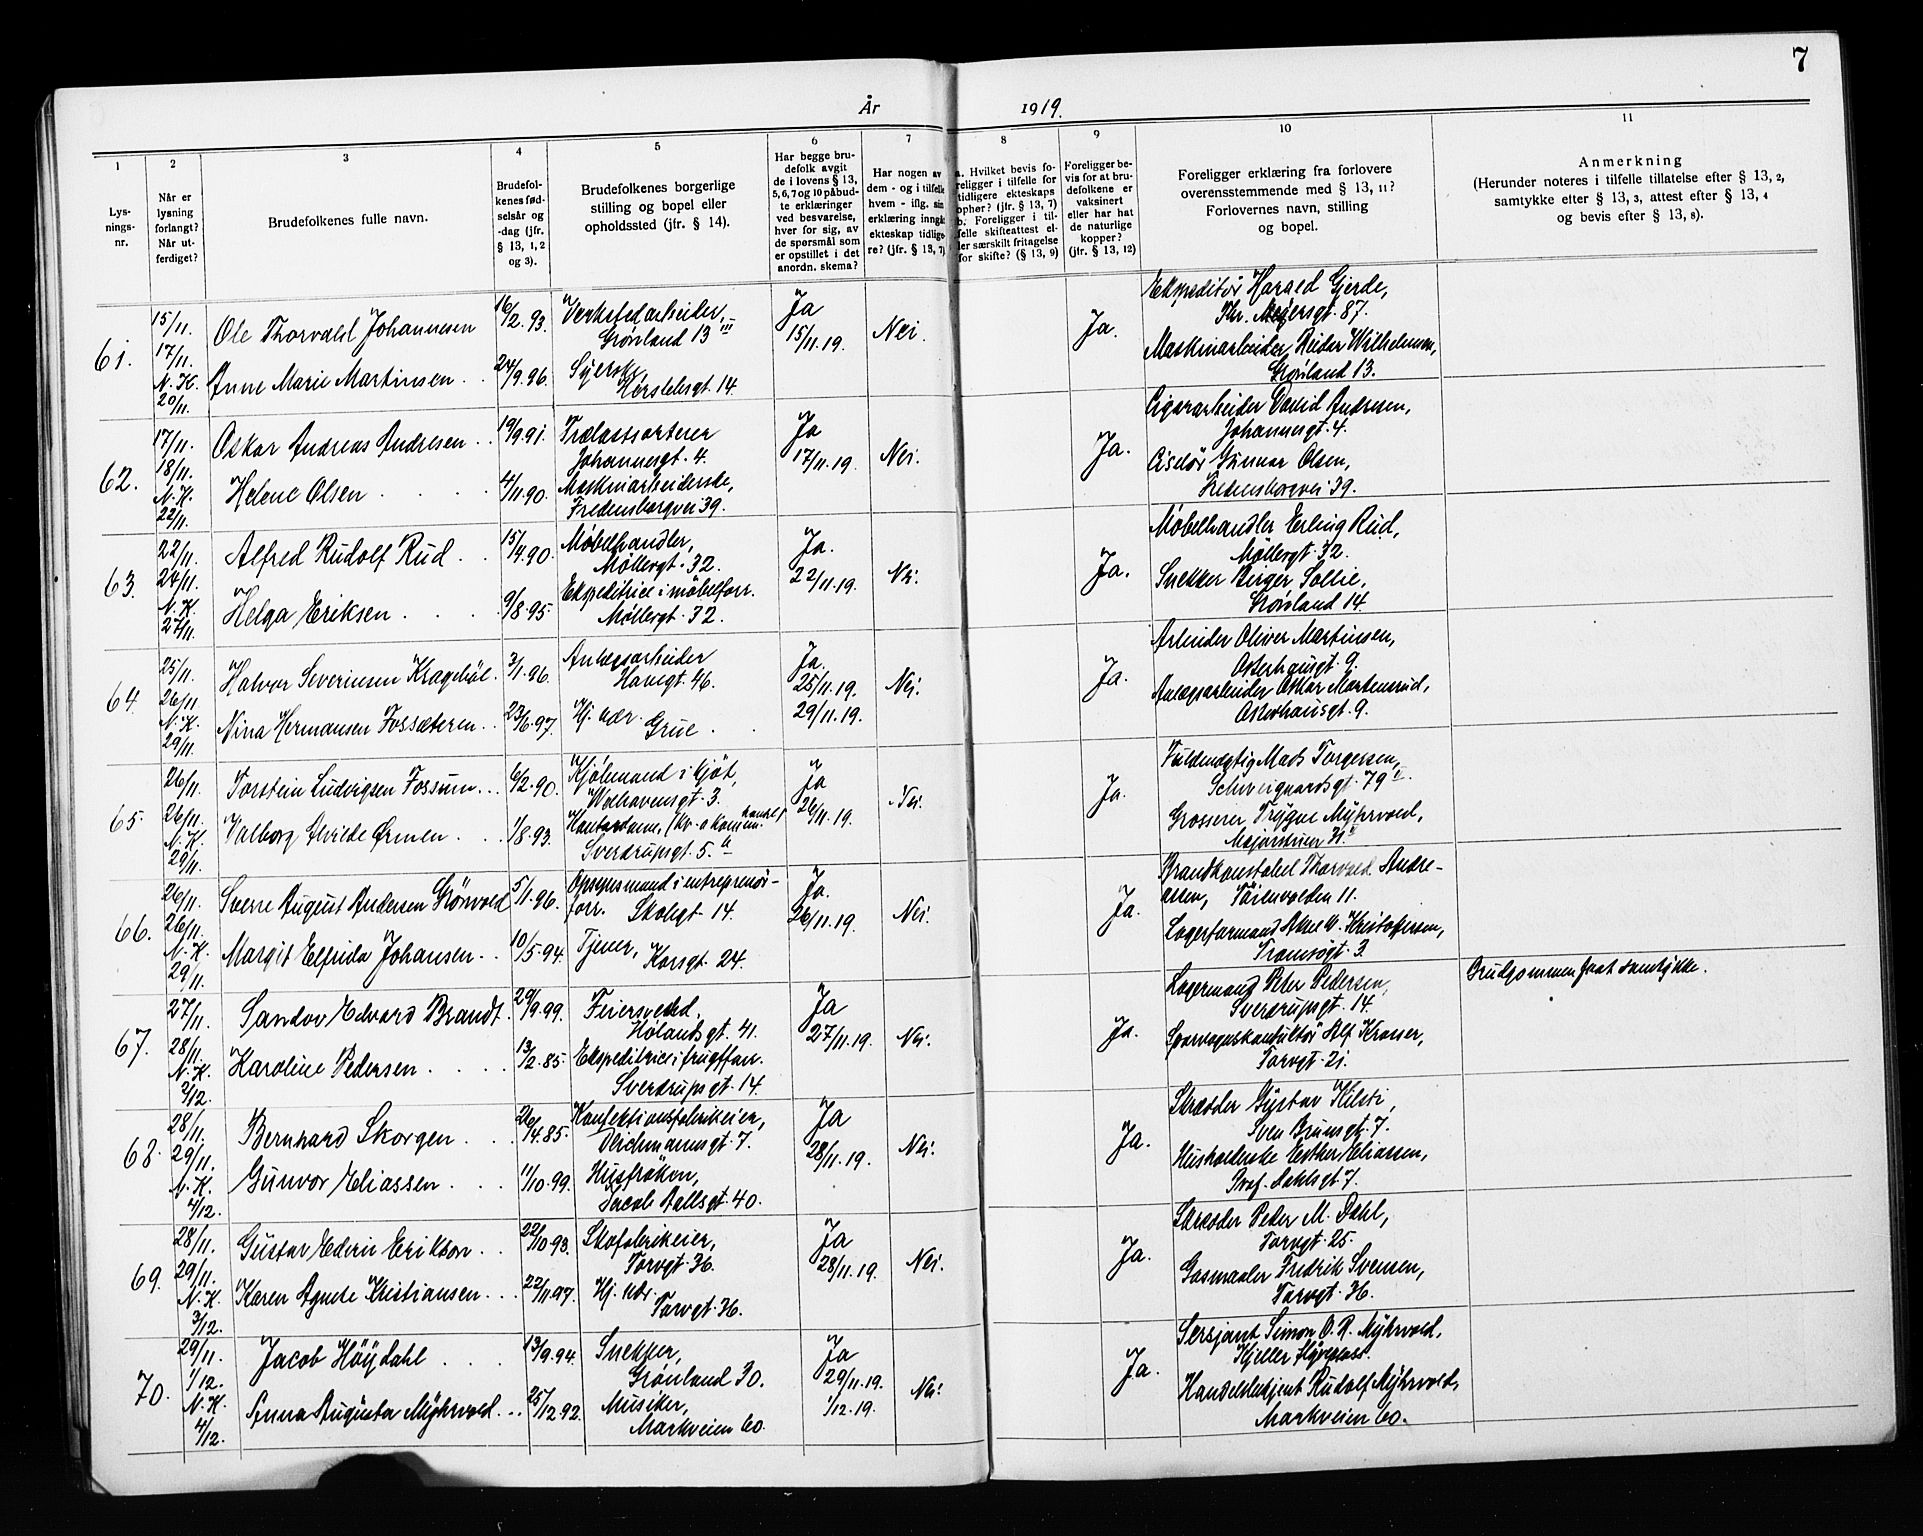 7
År 1919.
1
Lys-
nings-
nr.
2
Når er
lysning
forlangt?
Når ut-
ferdiget?
3
Brudefolkenes fulle navn.
4
Brudefol-
kenes fød-
selsår og
-dag (jfr.
§ 13, 1, 2
og 3).
5
Brudefolkenes borgerlige
stilling og bopel eller
opholdssted (jfr. § 14).
6
Har begge bru-
defolk avgit
de i lovens § 13,
5, 6, 7 og 10 påbud-
te erklæringer
ved besvarelse,
hver for sig, av
de spørsmål som
er opstillet i det
anordn. skema?
7
Har nogen av
dem - og i tilfelle
hvem - iflg. sin
erklæring inngåt
ekteskap tidlige-
re? (jfr. § 13, 7)
8
a. Hvilket bevis fo-
religger i tilfelle for
tidligere ekteskaps
ophør? (jfr. § 13, 7)
b. Foreligger i til-
felle skifteattest el-
ler særskilt fritagelse
for skifte? (§ 13, 9)
9
Foreligger be-
vis for at bru-
defolkene er
vaksinert
eller har hat
de naturlige
kopper?
(jfr. § 13, 12)
10
Foreligger erklæring fra forlovere
overensstemmende med § 13, 11?
Forlovernes navn, stilling
og bopel.
11
Anmerkning
(Herunder noteres i tilfelle tillatelse efter § 13, 2,
samtykke efter § 13, 3, attest efter § 13, 4
og bevis efter § 13, 8).
61.
15/11.
17/11.
N.K.
20/11.
Ole Thorvald Johannesen
16/2.93.
Verkstedarbeider,
Grønland 13 III
Anne Marie Martinsen . .
24/9.96.
Syerske,
Herslebsgt. 14
Ja
15/11.19.
Nei.
Ja.
Ekspeditør Harald Gjerde,
Thr. Meyersgt. 87.
Maskinarbeider Reidar Wilhelmsen,
Grønland 13.
62.
17/11.
18/11.
N.K.
22/11.
Oskar Andreas Andresen . .
19/9.91.
Trælastsorterer
Johannesgt. 4.
Helene Olsen . . . .
4/11.90.
Maskinarbeiderske,
Fredensborgvei 39.
Ja
17/11.19.
Nei.
Ja.
Cigararbeider David Andresen,
Johannesgt. 4.
Ciselør Gunnar Olsen,
Fredensborgvei 39.
63.
22/11.
24/11.
N.K.
27/11.
Alfred Rudolf Rud . .
15/4.90.
Møbelhandler,
Møllergt. 32.
Helga Eriksen . . . .
9/8.95.
Ekspeditrice i møbelforr.
Møllergt. 32.
Ja.
22/11.19.
Nei.
Ja.
Møbelhandler Erling Rud,
Møllergt. 32.
Snekker Birger Sollie,
Grønland 14.
64.
25/11.
26/11.
N.K.
29/11.
Halvor Severinsen Kragebøl.
3/1.96.
Anlægsarbeider
Havegt. 46.
Nina Hermansen Fossæteren . .
23/6.97.
Hj. vær.
Grue .
Ja.
25/11.19.
29/11.19.
Nei.
Ja.
Arbeider Oliver Martinsen,
Osterhausgt. 9.
Anlægsarbeider Oskar Martensrud,
Osterhausgt. 9.
65.
26/11.
26/11.
N.K.
29/11.
Torstein Ludvigsen Fossum . .
6/2.90.
Kjøbmand i kjøt,
Welhavensgt. 3.
Valborg Alvilde Ørmen . .
1/8.93.
Kontordame,
Sverdrupsgt. 5.
Ja
26/11.19.
Nei.
Ja.
Fuldmægtig Mads Torgersen,
Schweigaardsgt. 79
Grosserer Trygve Myhrvold,
Majorstuen
66.
26/11.
26/11.
N.K.
29/11.
Sverre August Andersen Grønvold
5/1.96.
Opsynsmand i entreprenør-
forr. Skolegt. 14.
Margit Elfrida Johansen . .
10/5.94.
Tjener,
Korsgt. 24.
Ja.
26/11.19.
Nei.
Ja.
Brandkonstabel Thorvald Andre-
assen, Tøienvolden 11.
Lagerformand Aksel W. Kristoffersen,
Tromsøgt. 3.
67.
27/11.
28/11.
N.K.
2/12.
Sandov Edvard Brandt.
29/9.99.
Feiersvend,
Hølandsgt. 41.
Karoline Pedersen . . . .
13/2.85.
Sverdrupsgt. 14.
Ja
27/11.19.
Nei.
Ja.
Lagermand Peter Pedersen,
Sverdrupsgt. 14.
Sporvognskonduktør Alf Krosser,
Torvgt. 21.
Brudgommen faat samtykke.
68.
28/11.
29/11.
N.K.
4/12.
Bernhard Skorgen . . .
26/4.85.
Konfektionsfabrikeier,
Deichmannsgt. 7.
Gunvor Eliassen . . .
11/10.99.
Husfrøken,
Jacob Aallsgt. 40.
Ja
28/11.19.
Nei.
Ja.
Skrædder Gustav Kilsti,
Sven Brunsgt. 7.
Husholderske Esther Eliassen,
Prof. Dahlsgt. 7.
69.
28/11.
29/11.
N.K.
3/12.
Gustav Edvin Erikson . .
22/10.93.
Skofabrikeier,
Torvgt. 36.
Karen Agnete Kristiansen . . .
22/11.97.
Hj. vær.
Torvgt. 36.
Ja
28/11.19.
Nei.
Ja.
Skrædder Peder M. Dahl,
Torvgt. 25.
Gasmaaler Fredrik Svensen,
Torvgt. 36.
70.
29/11.
1/12.
N.K.
4/12.
Jacob Høydahl . . .
13/9.94.
Snekker,
Grønland 30.
Anna Augusta Myhrvold . . .
25/12.92.
Musiker,
Markveien 60.
Ja
29/11.19.
1/12.19.
Nei.
Ja.
Sersjant Simon O. R. Myhrvold,
Kjeller
Handelsbetjent Rudolf Myhrvold,
Markveien 60.